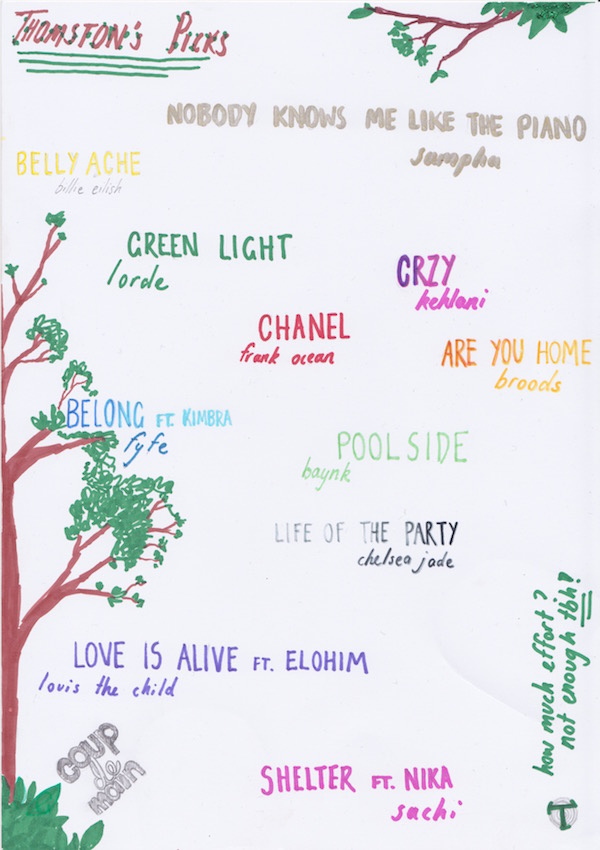 THOMSTON'S PICKS
NOBODY KNOWS ME LIKE THE PIANO
sampha
BELLY ACHE
billie eilish
GREEN LIGHT
lorde
CRZY
kehlani
CHANEL
frank ocean
ARE YOU HOME
broods
BELONG FT. KIMBRA
fyfe
POOLSIDE
baynk
LIFE OF THE PARTY
chelsea jade
how much effort?
not enough tbh?
LOVE IS ALIVE FT. ELOHIM
louis the child
coup
de
main
SHELTER FT. NIKA
sachi
T